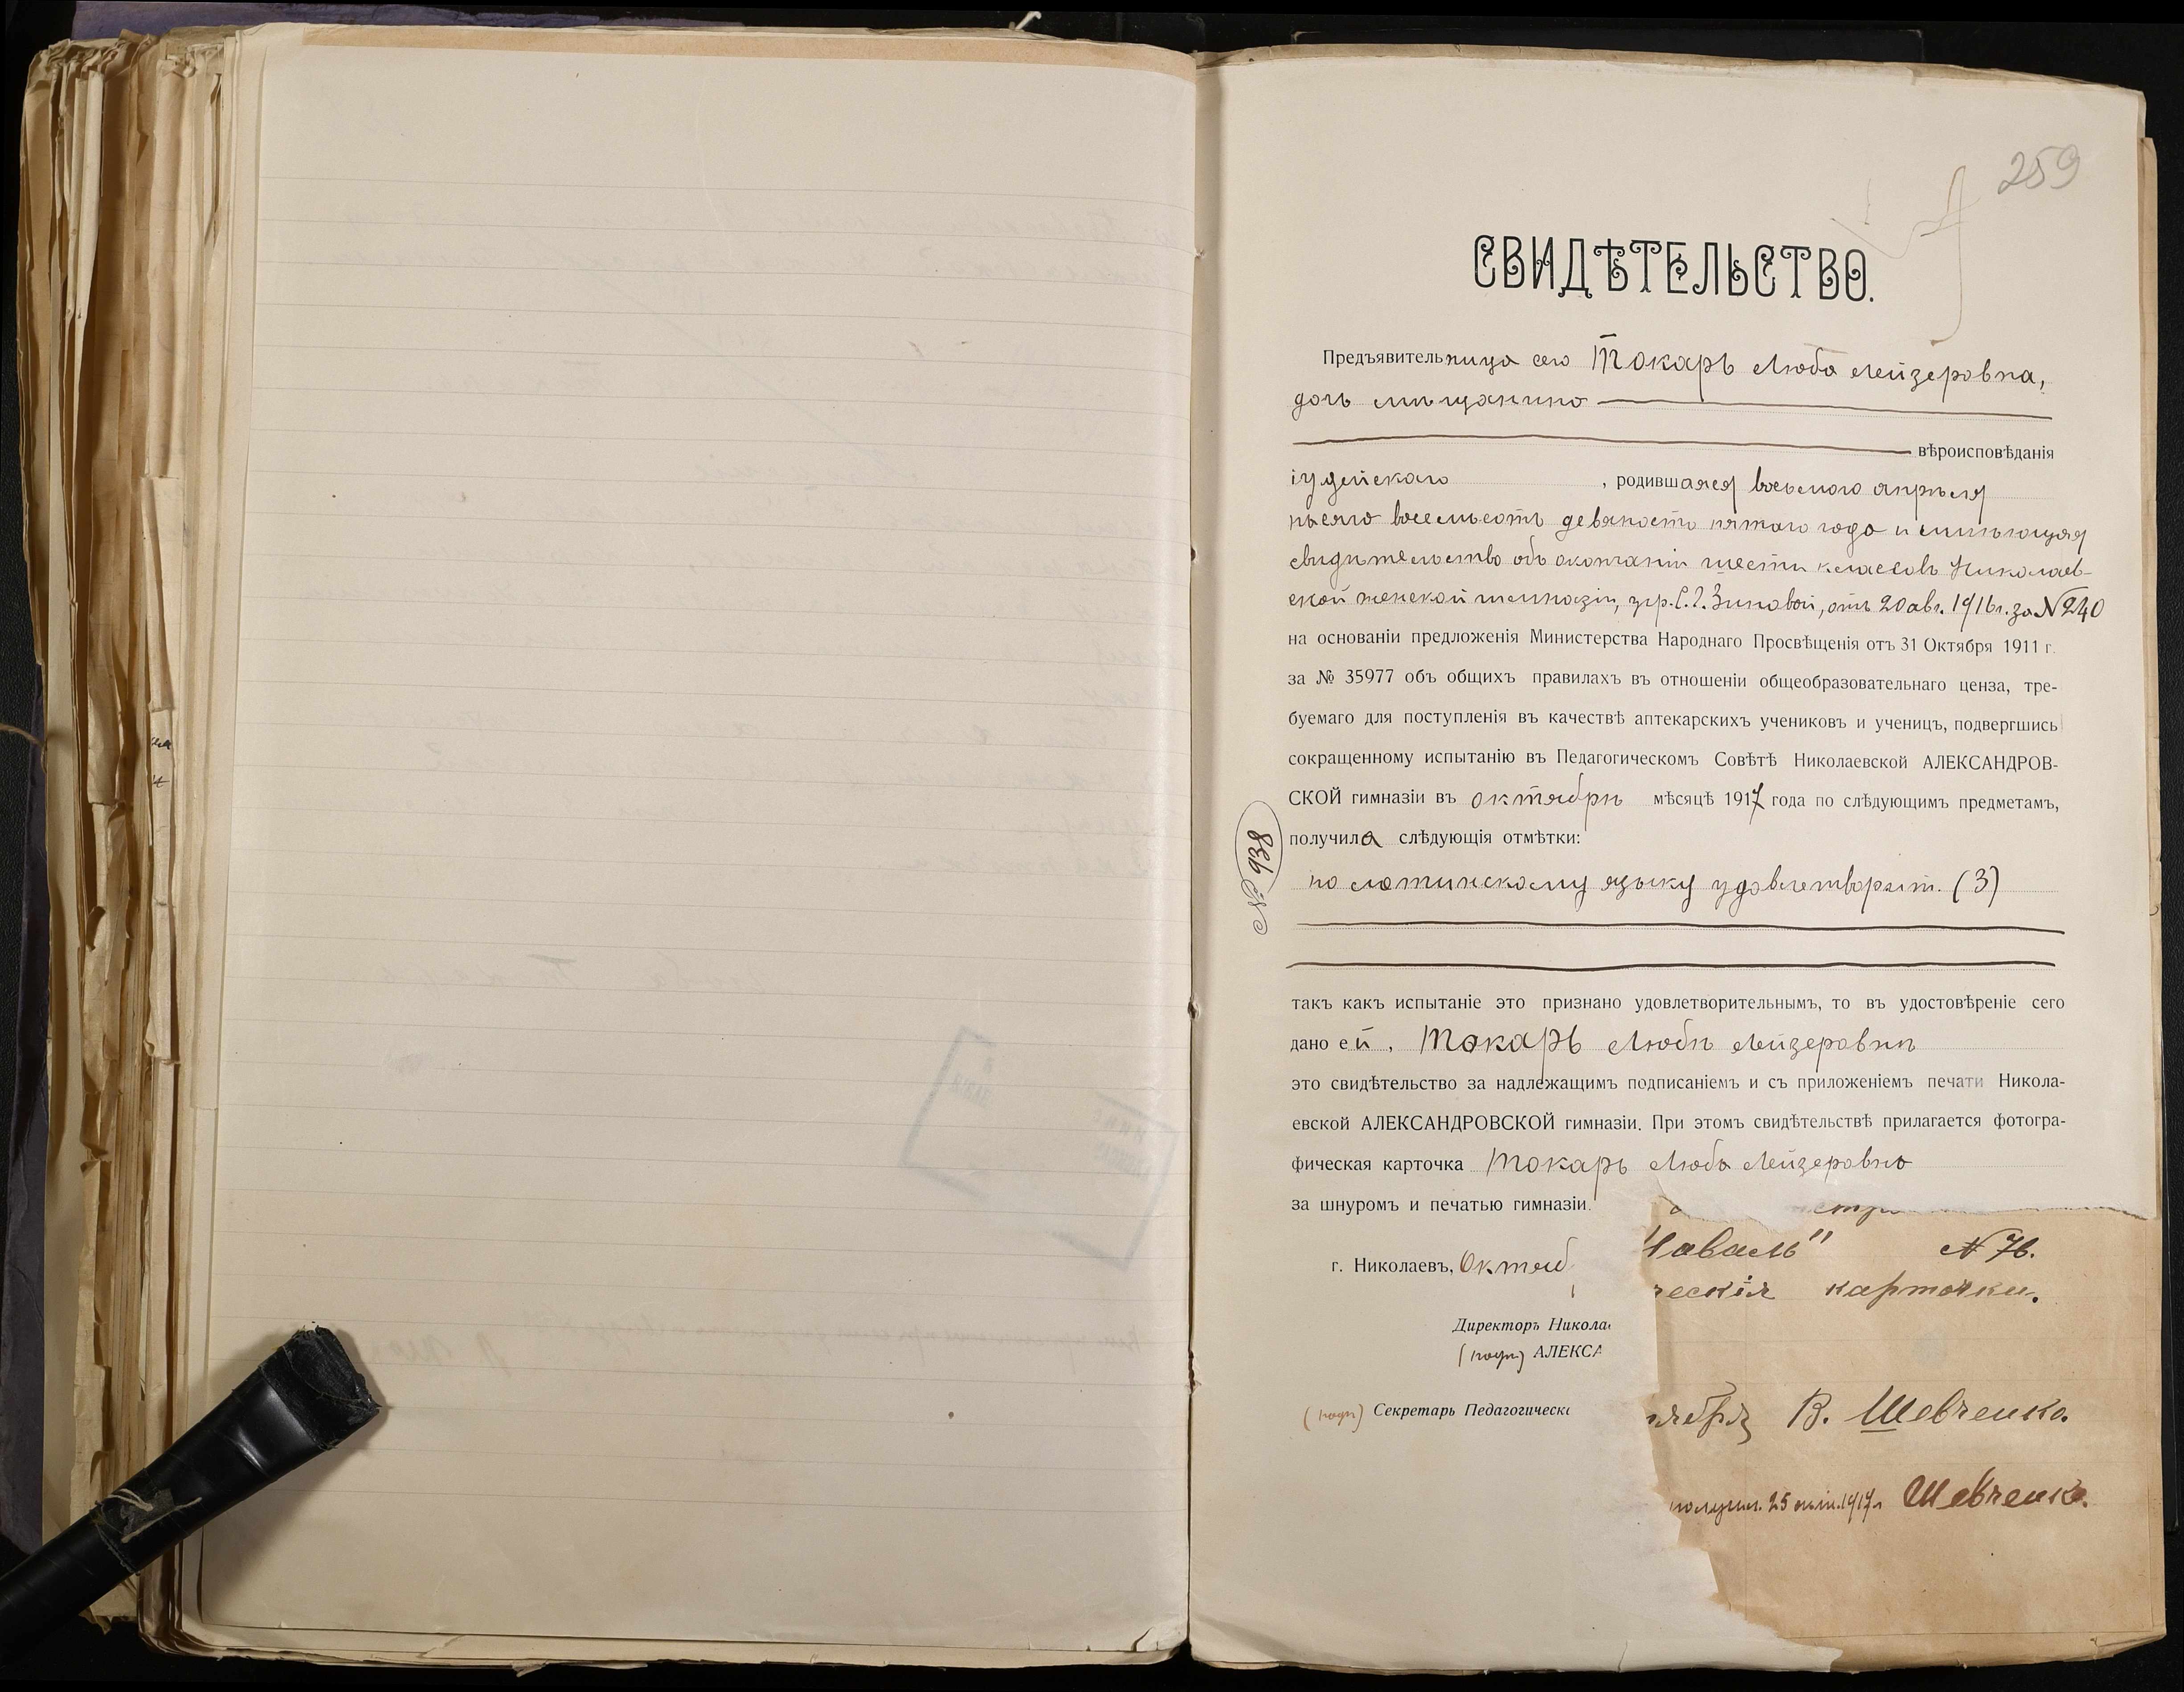 259
СВИДѢТЕЛЬСТВО.
Предъявительница сего Токарь Люба Лейзеровна,
дочь мѣщанина
вѣроисповѣданія
іудейскаго , родившаяся восьмого апрѣля
тысяча восемьсотъ девяносто пятаго года и имѣющая
свидѣтельство объ окончаніи шести классовъ Николаев-
ской женской гимназіи, учр. С. І. Зиновой, отъ 20 авг. 1916 г. за № 240
на основаніи предложенія Министерства Народнаго Просвѣщенія отъ 31 Октября 1911 г.
за № 35977 объ общихъ правилахъ въ отношеніи общеобразовательнаго ценза, тре-
буемаго для поступленія въ качествѣ аптекарскихъ учениковъ и ученицъ, подвергшись
сокращенному испытанію въ Педагогическомъ Совѣтѣ Николаевской АЛЕКСАНДРОВ-
СКОЙ гимназіи въ октябрѣ мѣсяцѣ 1917 года по слѣдующимъ предметамъ,
получила слѣдующія отмѣтки:
№ 938
по латинскому языку удовлетворит. (3)
такъ какъ испытаніе это признано удовлетворительнымъ, то въ удостовѣреніе сего
дано ей, Токарь Любѣ Лейзеровнѣ
это свидѣтельство за надлежащимъ подписаніемъ и съ приложеніемъ печати Никола-
евской АЛЕКСАНДРОВСКОЙ гимназіи. При этомъ свидѣтельствѣ прилагается фотогра-
фическая карточка Токарь Любы Лейзеровны
за шнуромъ и печатью гимназіи.
№ 76.
г. Николаевъ, Октяб
ческія карточки.
Директоръ Никола
(подп) АЛЕКСА
(подп) Секретарь Педагогическ
тября В. Шевченко.
получил. 25 окт. 1917 г. Шевченко.